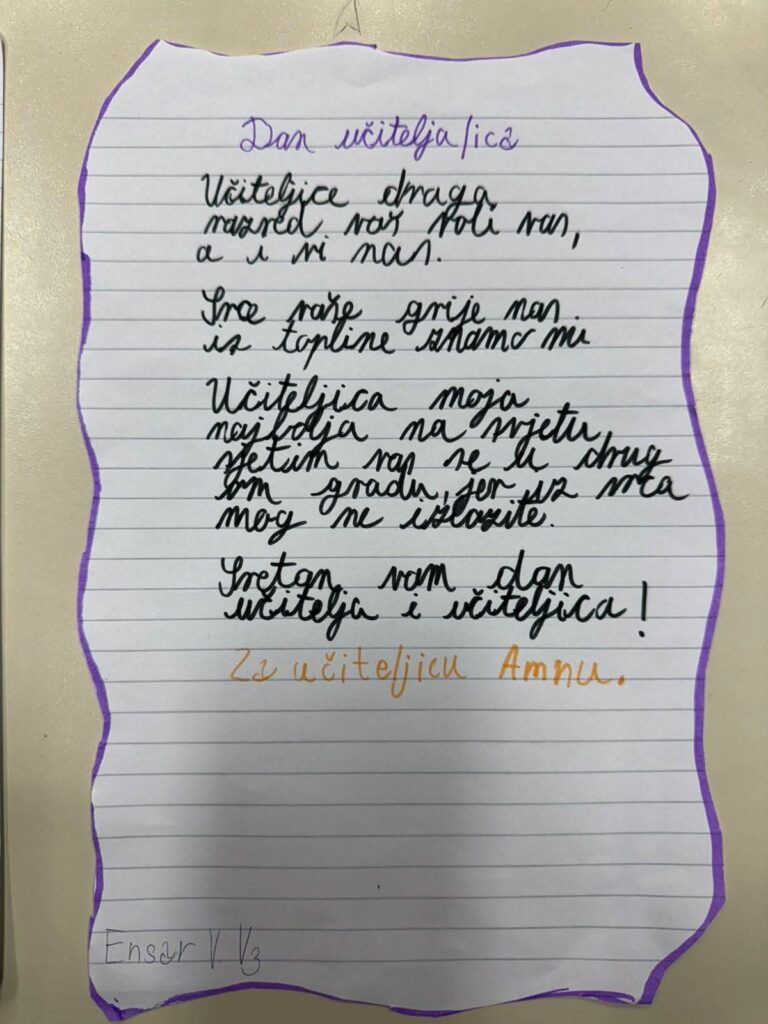 Dan učitelja/ica
Učiteljice draga
razred vas voli vas,
a i vi nas.
Srce vaše grije nas.
iz topline znamo mi
Učiteljica moja
najbolja na svjetu,
sjetim vas se u drug
om gradu, jer iz srca
mog ne izlazite.
Sretan vam dan
učitelja i učiteljica!
Za učiteljicu Amnu.
Ensar V. V3